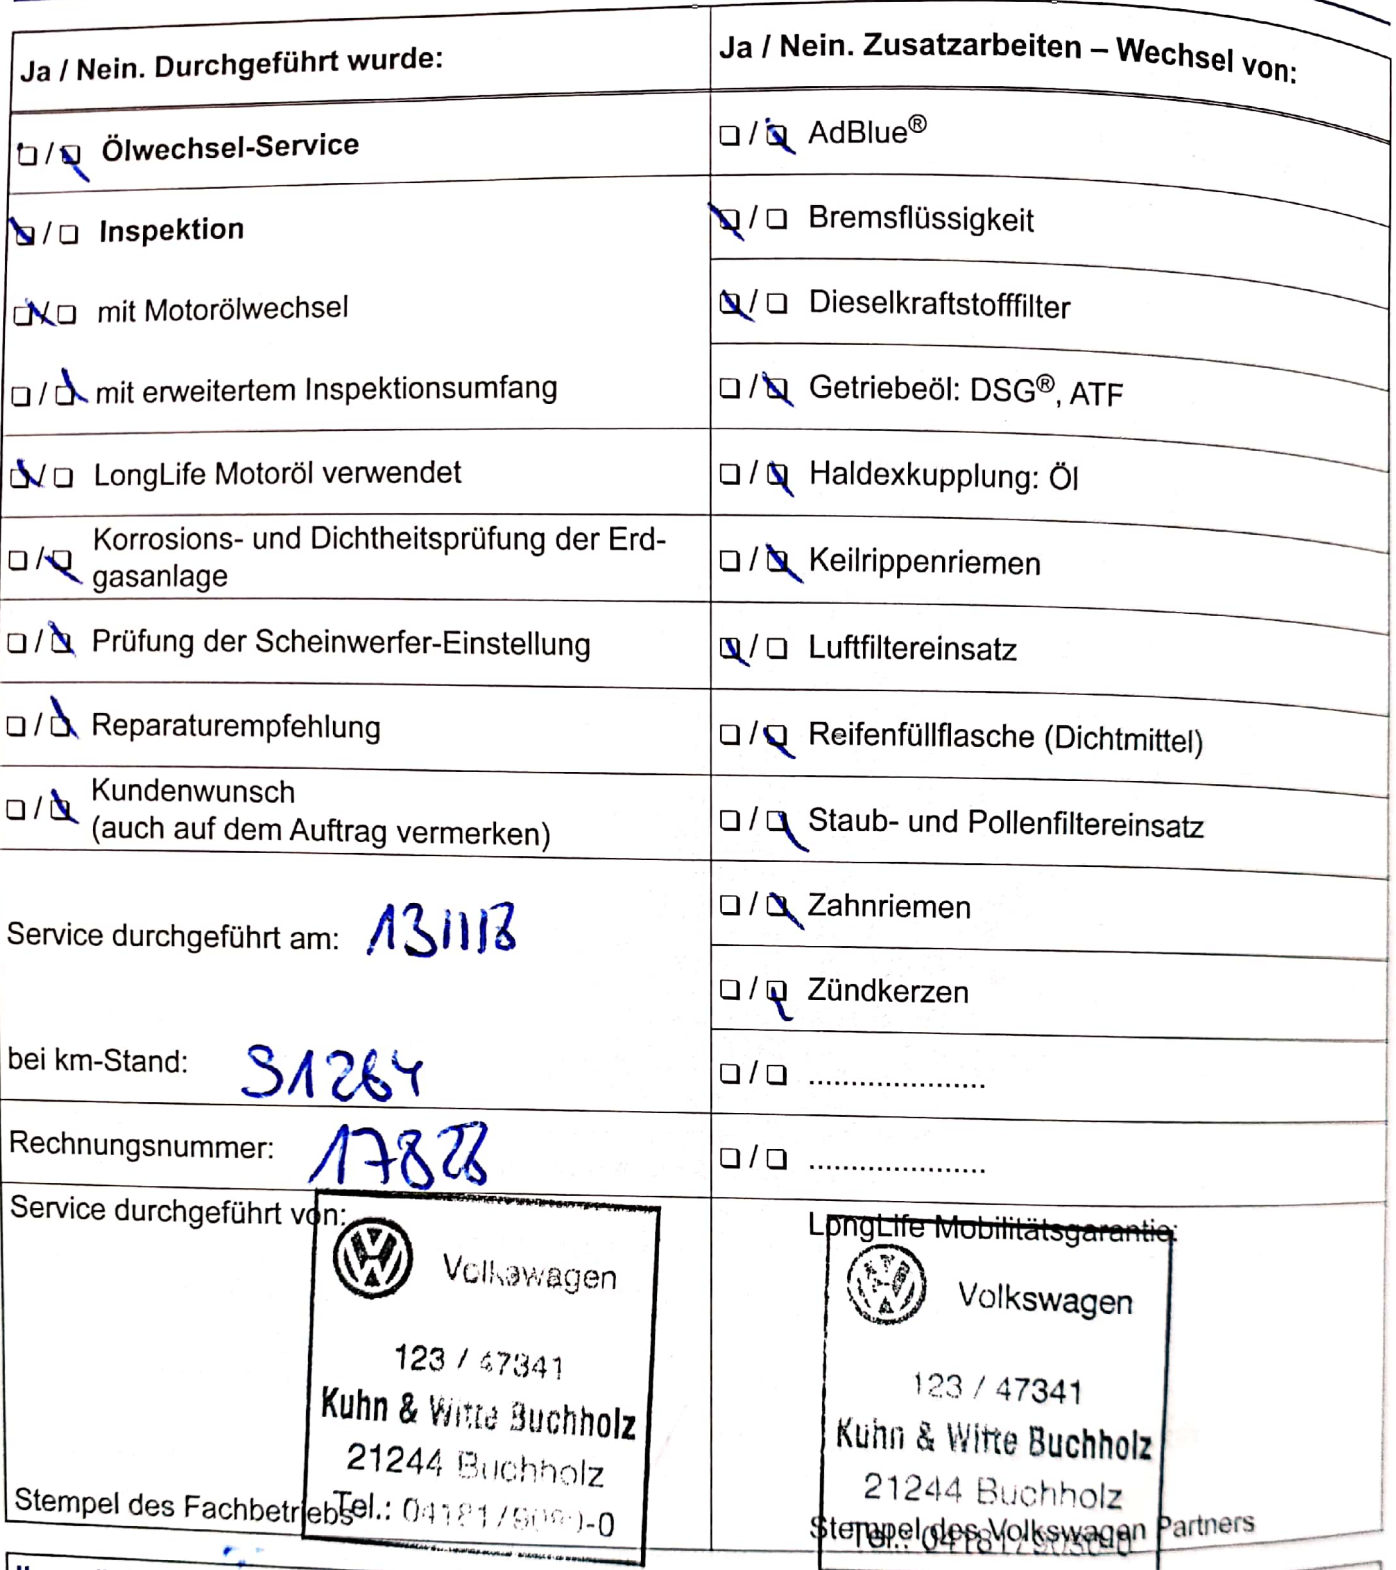 Ja / Nein. Durchgeführt wurde:
☐ / ☒ Ölwechsel-Service
☒ / ☐ Inspektion
☒ / ☐ mit Motorölwechsel
☐ / ☒ mit erweitertem Inspektionsumfang
☒ / ☐ LongLife Motoröl verwendet
☐ / ☒ Korrosions- und Dichtheitsprüfung der Erd-
gasanlage
☐ / ☒ Prüfung der Scheinwerfer-Einstellung
☐ / ☒ Reparaturempfehlung
☐ / ☒ Kundenwunsch
(auch auf dem Auftrag vermerken)
Service durchgeführt am: 131118
bei km-Stand: 91264
Rechnungsnummer:
Service durchgeführt von:
Volkswagen
123 / 47341
Kuhn & Witte Buchholz
21244 Buchholz
Tel.:
Stempel des Fachbetriebs
Ja / Nein. Zusatzarbeiten – Wechsel von:
☐ / ☒ AdBlue®
☒ / ☐ Bremsflüssigkeit
☒ / ☐ Dieselkraftstofffilter
☐ / ☒ Getriebeöl: DSG®, ATF
☐ / ☒ Haldexkupplung: Öl
☐ / ☒ Keilrippenriemen
☒ / ☐ Luftfiltereinsatz
☐ / ☒ Reifenfüllflasche (Dichtmittel)
☐ / ☒ Staub- und Pollenfiltereinsatz
☐ / ☒ Zahnriemen
☐ / ☒ Zündkerzen
☐ / ☐ .....................
☐ / ☐ .....................
LongLife Mobilitätsgarantie:
Volkswagen
123 / 47341
Kuhn & Witte Buchholz
21244 Buchholz
Tel.:
Stempel des Volkswagen Partners